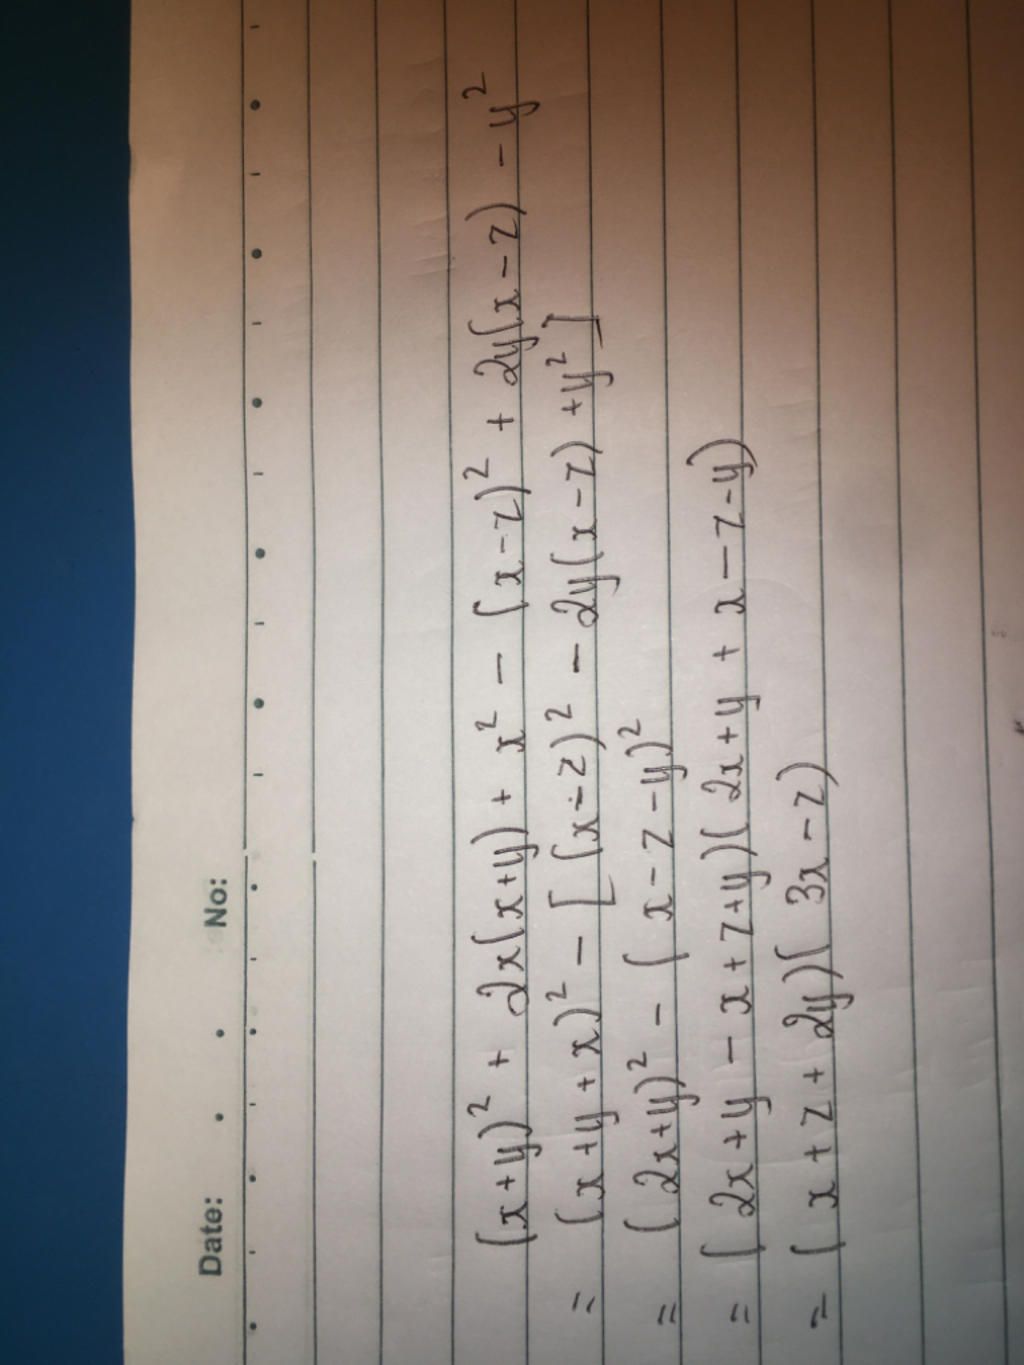 Date: No:
(x+y)² + 2x(x+y) + x² - (x-z)² + 2y(x-z) - y²
= (x+y+x)² - [(x-z)² - 2y(x-z) + y²]
= (2x+y)² - (x-z-y)²
= (2x+y-x+z+y)(2x+y+x-z-y)
= (x+z+2y)(3x-z)